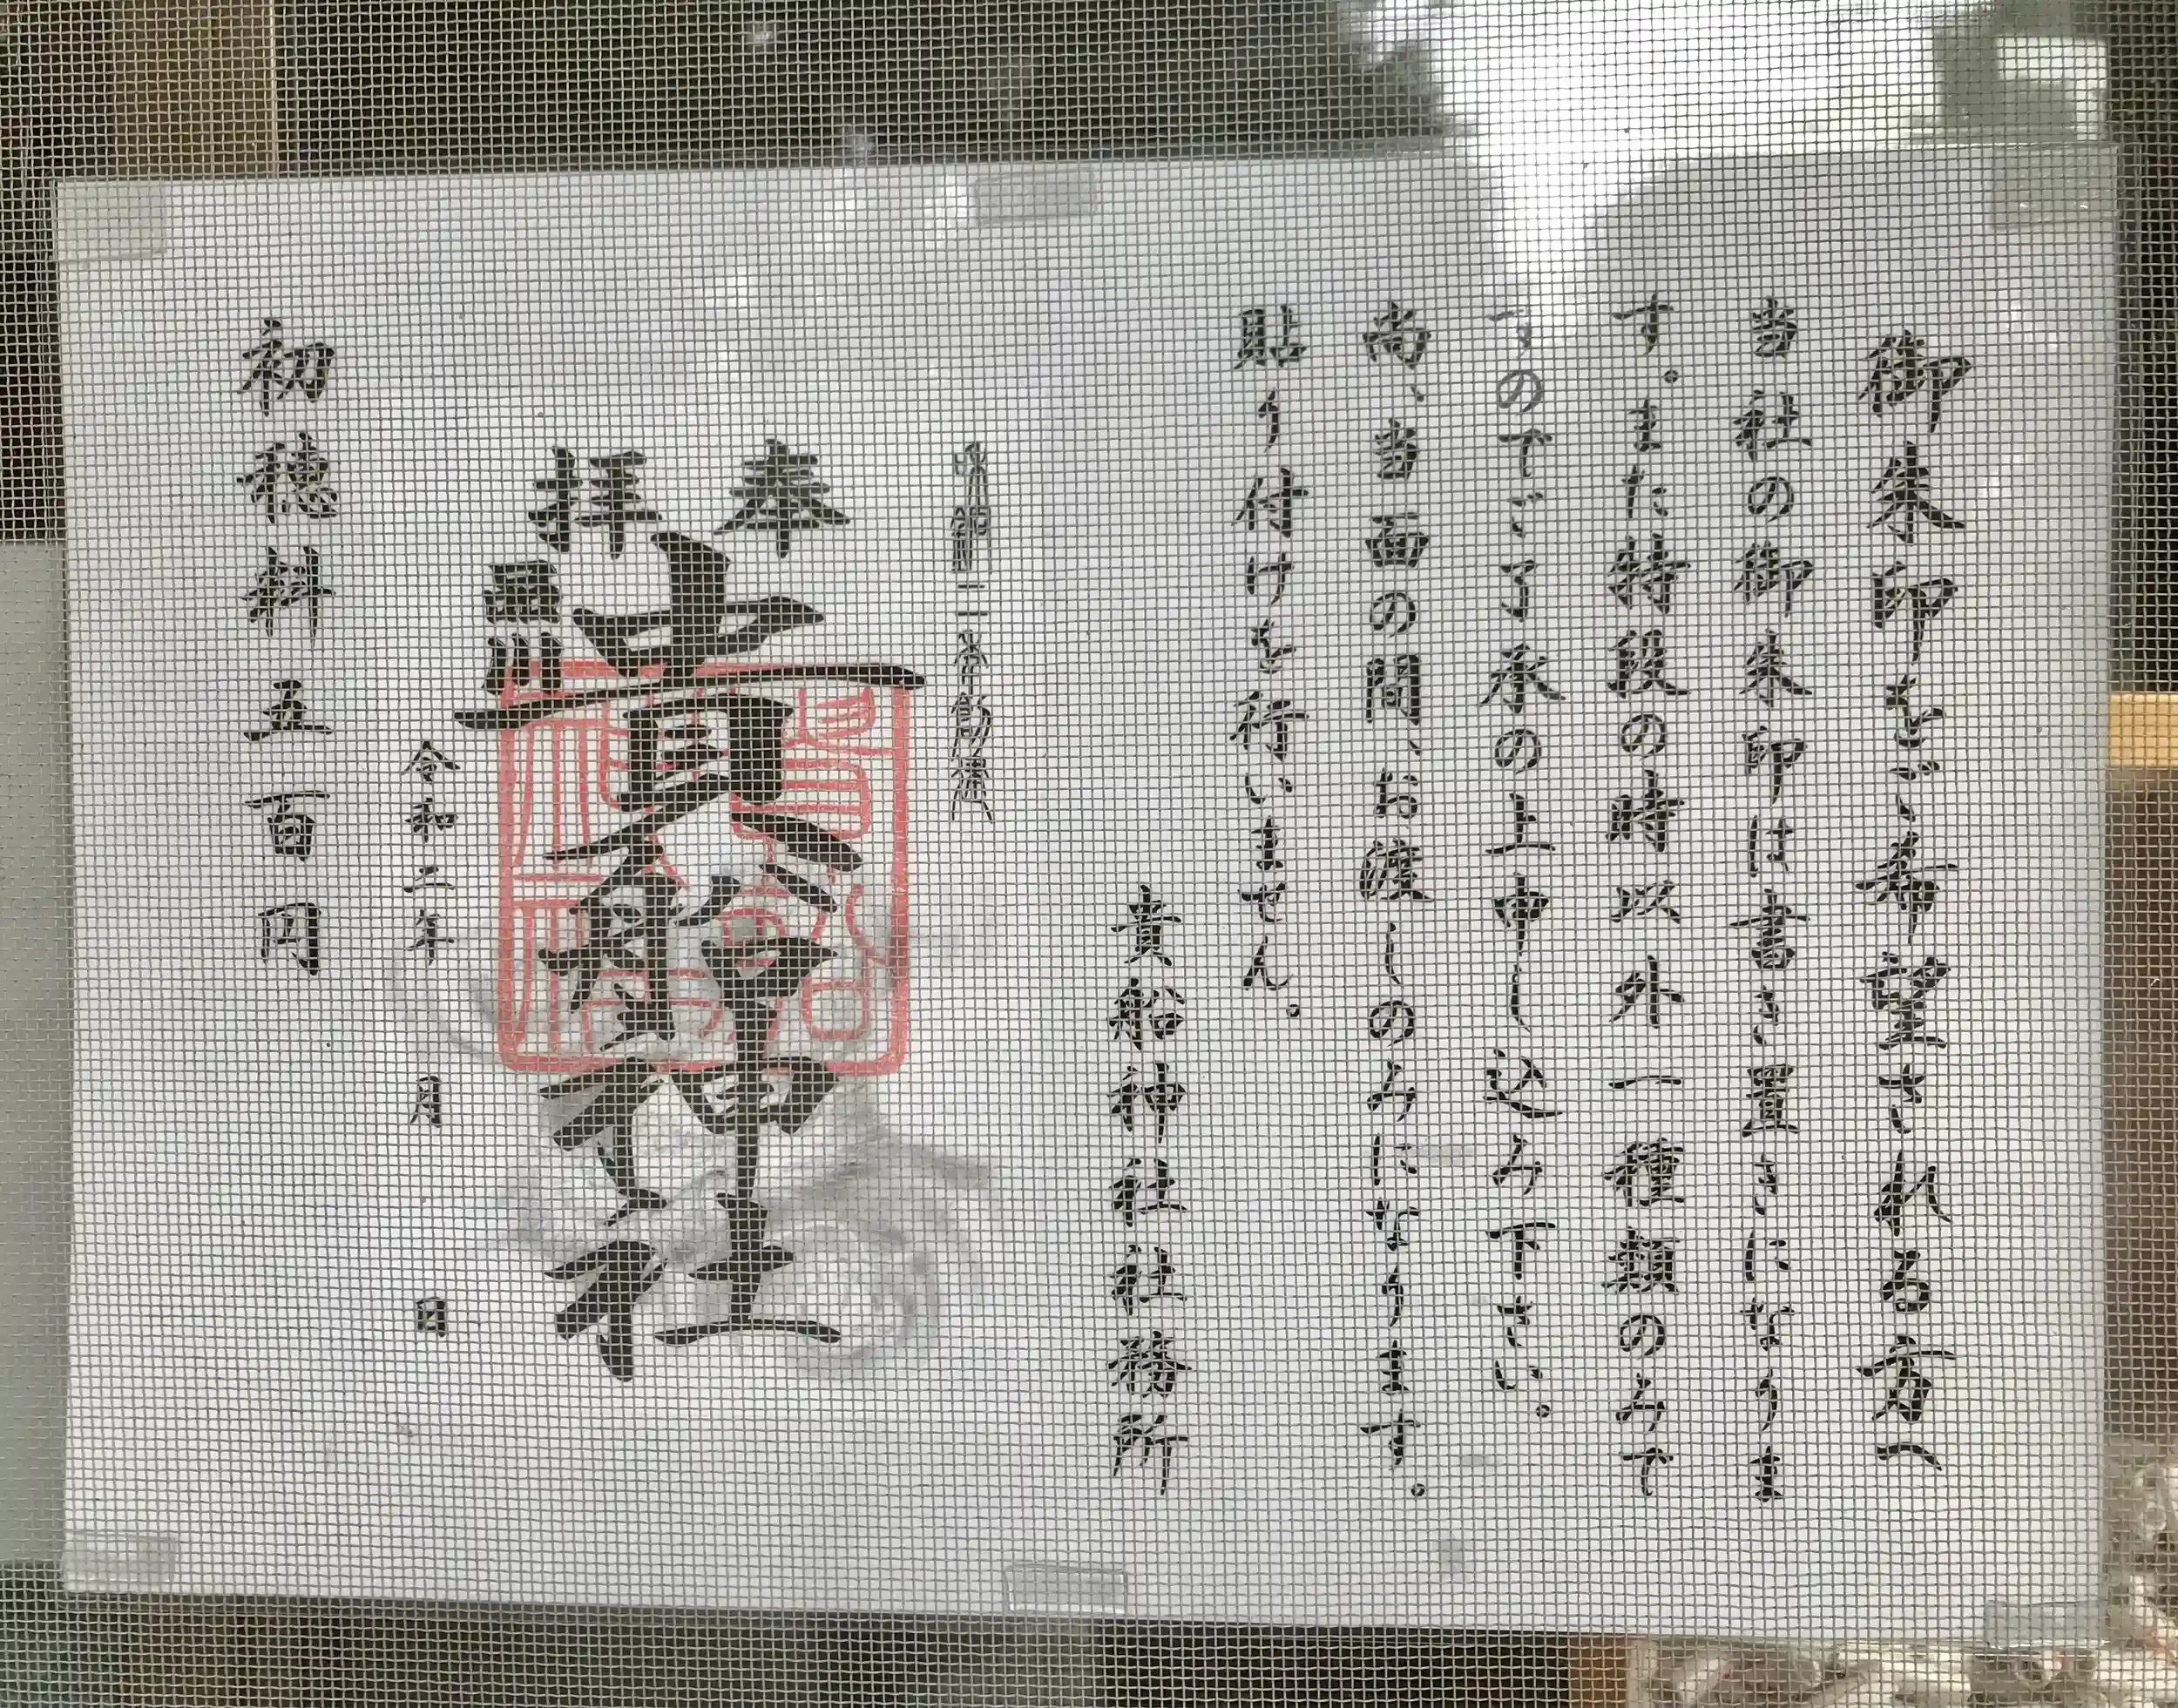 御朱印をご希望される方へ
当社の御朱印は書き置きになりま
す。また特段の時以外一種類のみで
すのでご了承の上申し込み下さい。
尚、当面の間、お渡しのみになります。
貼り付けを行いません。
貴船神社社務所
奉拝
貴船神社
令和二年 月 日
初穂料五百円